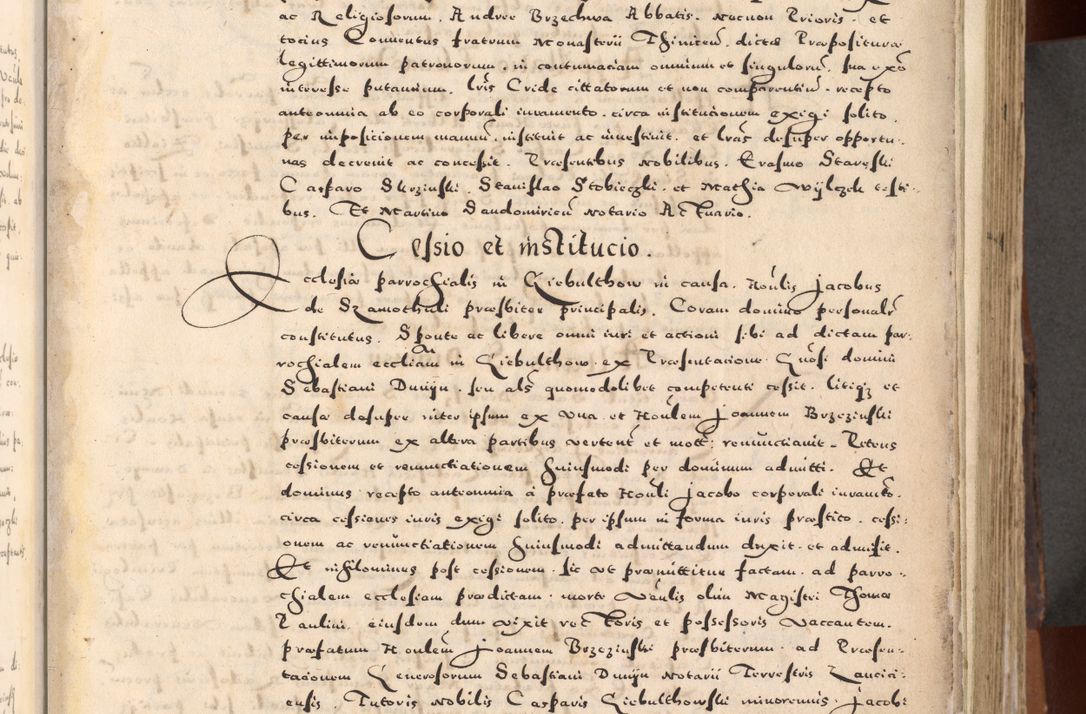 ac Religiosorum. Andree Brzechwa Abbatis. Necnon Prioris. et
tocius Conuentus fratrum Monasterii Thinicen. dictæ Præposituræ
legittimorum patronorum. in contumaciam omnium et singulorum. sua
interesse putantium. lris Cride cittatorum et non comparentium. recepto
anteomnia ab eo corporali iuramento. circa institucionem exigi solito.
per imposicionem manuum. instituit ac inuestiuit. et lras desuper opportu-
nas decreuit ac concessit. Præsentibus Nobilibus. Erasmo Stareski
Casparo Skrzinski. Stanislao Stobieczki. et Mathia Wylczek testi-
bus. Et Martino Sandomirien Notario Actuario.
Cessio et institucio.
Ecclesiæ parrochialis in Giebulthow in causa. Honlis Jacobus
de Szamothuli præsbiter principalis. Coram domino personalr
constitutus. Sponte ac libere omni iuri et actioni sibi ad dictam par-
rochialem eccliam in Giebulthow. ex Præsentacione Gnosi domini
Sebastiani Dunijn. seu als quomodolibet competenti cessit. litiqz et
causæ desuper inter ipsum ex Vna. et Honlem Joannem Brzezinski
præsbiterum ex altera partibus vertent et mott: renunctiauit. Petens
cessionem et renunctiationem huiusmodi per dominum admitti. Et
dominus recepto anteomnia à præfato Honli Jacobo corporali iuramto.
circa cessiones iuris exigi solito. per ipsum in forma iuris præstito. cessi-
onem ac renunctiationem huiusmodi admittendum duxit. et admisit.
Et nihilominus post cessionem. sic vt præmittitur factam. ad parro-
chialem ecclesiam prædictam. morte Venlis olim Magistri Thomæ
Paulini. eiusdem dum vixit rectoris et possessoris vaccantem.
præfatum Honlem Joannem Brzezinski præsbiterum. ad Præsen-
tacionem Generosorum Sebastiani Dunijn Notarii Terrestris
ensis. Tutoris nobilis Casparis Giebulthowski minorennis. Jacobi